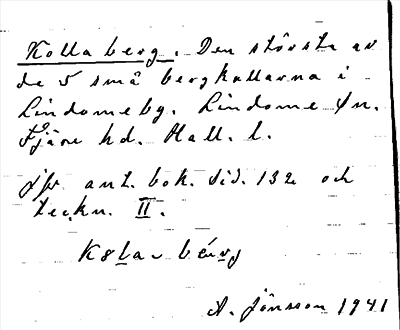 Kolla berg. Den största av
de 5 små bergkullarna i
Lindome by. Lindome sn.
Fjäre hd. Hall. l.
Jfr ant. bok. Sid. 132 och
teckn. II.
A. Jönsson 1941